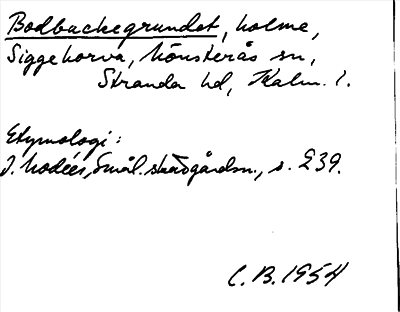 Bodbackegrundet, holme,
Siggehorva, Mönsterås sn,
Stranda hd, Kalm. l.
Etymologi:
J. Modéer, Smål. skärgårdsn., s. 239.
C. B. 1954